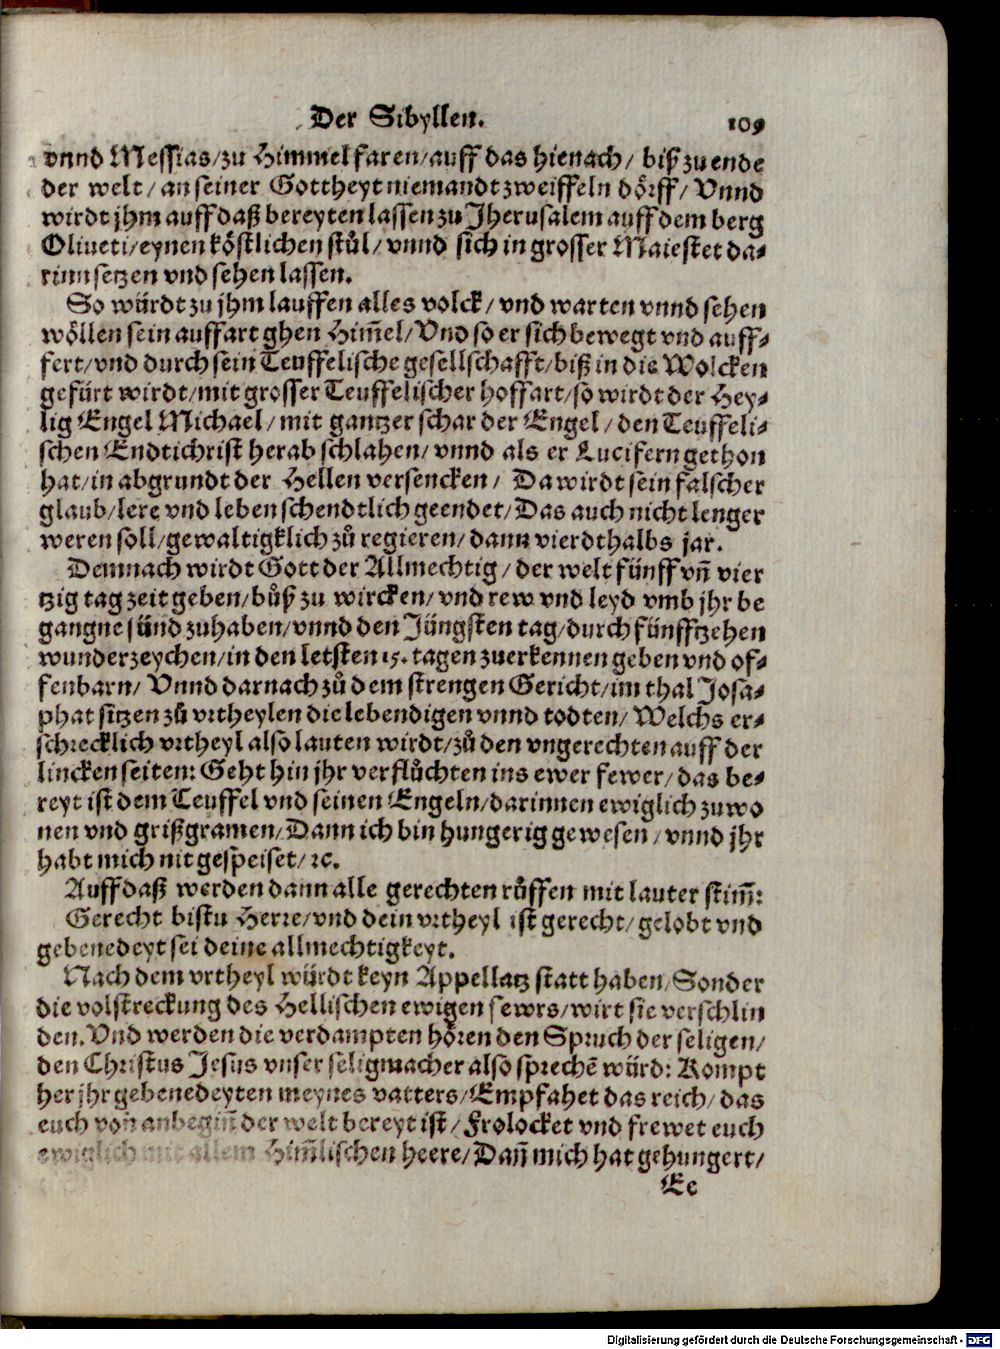 Der Sibyllen. 109
vnnd Messias/zu Himmel faren/auff das hienach/ biß zu ende
der welt/an seiner Gottheyt niemandt zweiffeln dörff/ Vnnd
wirdt jhm auff daß bereyten lassen zu Jherusalem auff dem berg
Oliueti/eynen köstlichen stůl/ vnnd sich in grosser Maiestet da-
rinn setzen vnd sehen lassen.
So würdt zu jhm lauffen alles volck/ vnd warten vnnd sehen
wöllen sein auffart ghen Him̃el/Vnd so er sich bewegt vnd auff-
fert/vnd durch sein Teuffelische gesellschafft/biß in die Wolcken
gefürt wirdt/mit grosser Teuffelischer hoffart/so wirdt der Hey-
lig Engel Michael/ mit gantzer schar der Engel/ den Teuffeli-
schen Endtichrist herab schlahen/ vnnd als er Lucifern gethon
hat/in abgrundt der Hellen versencken/ Da wirdt sein falscher
glaub/lere vnd leben schendtlich geendet/Das auch nicht lenger
weren soll/gewaltigklich zů regieren/ dann vierdthalbs jar.
Demnach wirdt Gott der Allmechtig/ der welt fünff vñ vier
tzig tag zeit geben/bůß zu wircken/ vnd rew vnd leyd vmb jhr be
gangne sünd zuhaben/vnnd den Jüngsten tag/durch fünfftzehen
wunderzeychen/in den letsten 15. tagen zuerkennen geben vnd of-
fenbarn/ Vnnd darnach zů dem strengen Gericht/im thal Josa-
phat sitzen zů vrtheylen die lebendigen vnnd todten/ Welchs er-
schrecklich vrtheyl also lauten wirdt/zů den vngerechten auff der
lincken seiten: Geht hin jhr verflůchten ins ewer fewer/ das be-
reyt ist dem Teuffel vnd seinen Engeln/darinnen ewiglich zu wo
nen vnd grißgramen/Dann ich bin hungerig gewesen/ vnnd jhr
habt mich nit gespeiset/ ꝛc.
Auff daß werden dann alle gerechten růffen mit lauter stim̃:
Gerecht bistu Herre/vnd dein vrtheyl ist gerecht/ gelobt vnd
gebenedeyt sei deine allmechtigkeyt.
Nach dem vrtheyl würdt keyn Appellatz statt haben/Sonder
die volstreckung des Hellischen ewigen fewrs/wirt sie verschlin
den. Vnd werden die verdampten hören den Spruch der seligen/
den Christus Jesus vnser seligmacher also sprechẽ würd: Kompt
her jhr gebenedeyten meynes vatters/Empfahet das reich/ das
euch von anbegiñ der welt bereyt ist/ Frolocket vnd frewet euch
ewiglich mit allem Him̃lischen heere/Dañ mich hat gehungert/
Ee
Digitalisierung gefördert durch die Deutsche Forschungsgemeinschaft - DFG